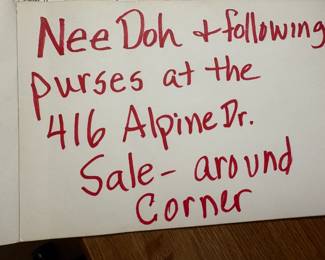 Nee Doh + following
purses at the
416 Alpine Dr.
Sale - around
Corner